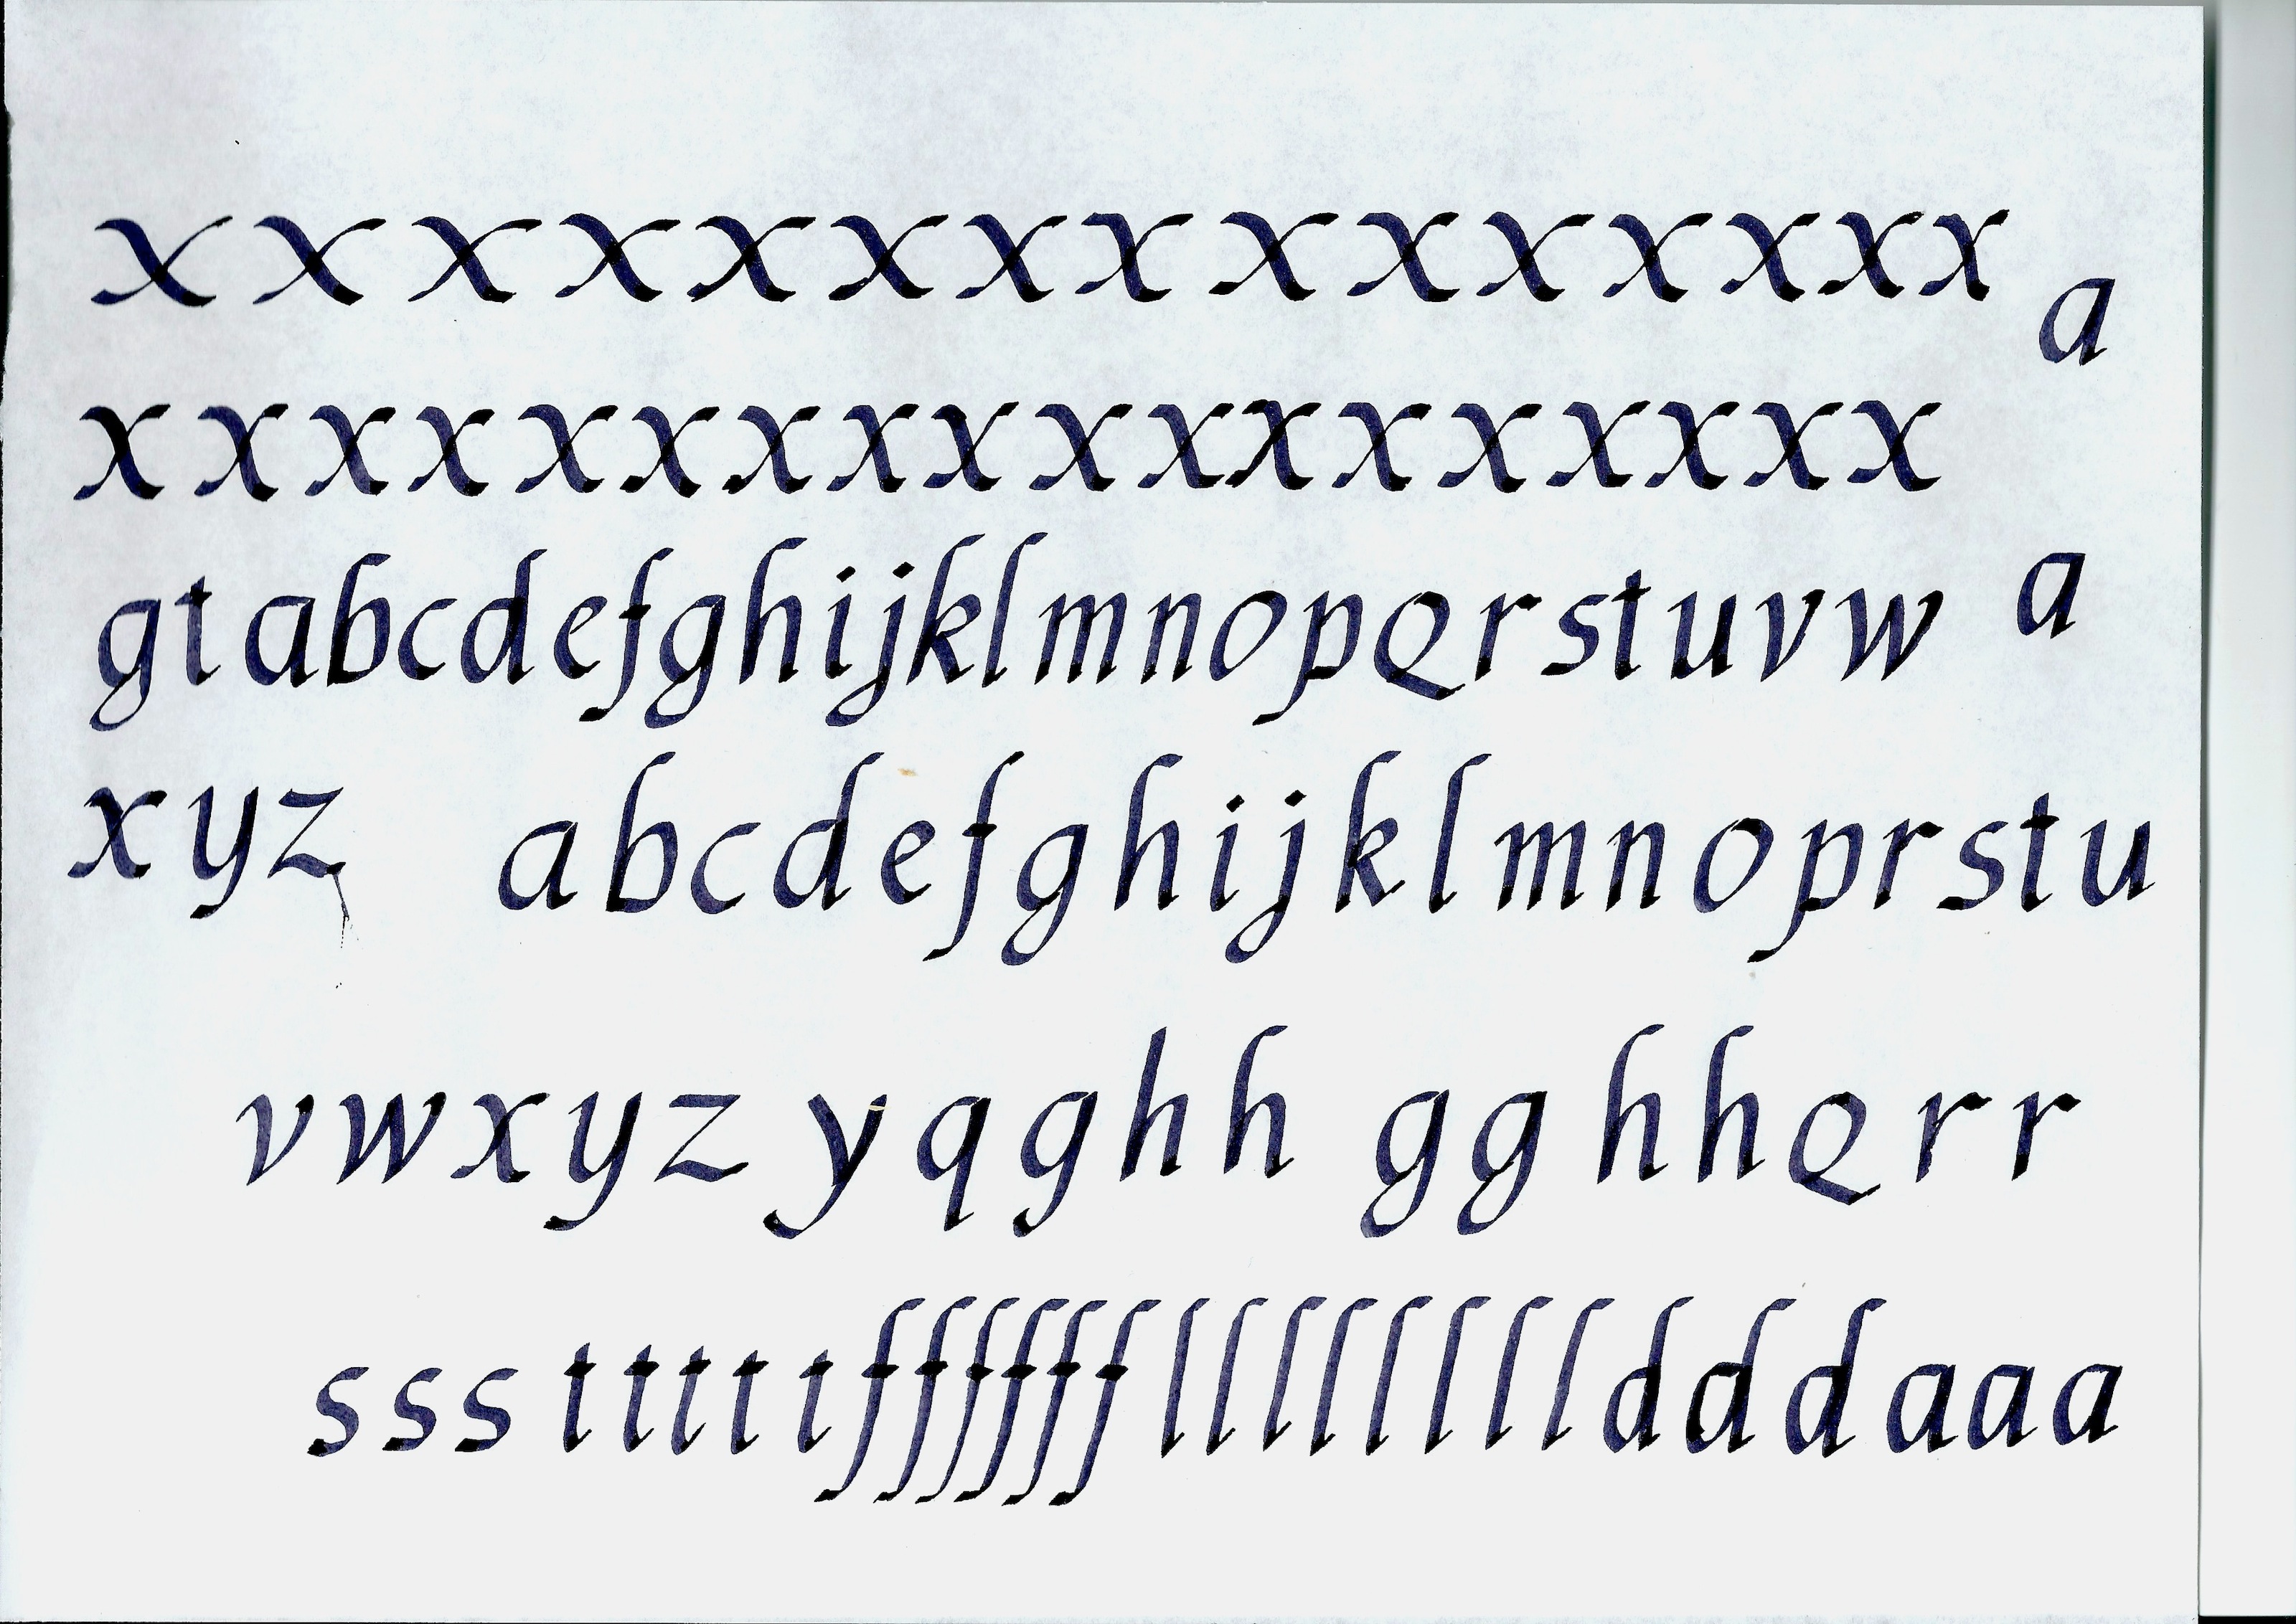 x x x x x x x x x x x x x x x a
x x x x x x x x x x x x x x x x x x
g t a b c d e f g h i j k l m n o p Q r s t u v w a
x y z a b c d e f g h i j k l m n o p r s t u
v w x y z y q g h h g g h h Q r r
s s s t t t t t f f f f f f l l l l l l l l l d d d a a a